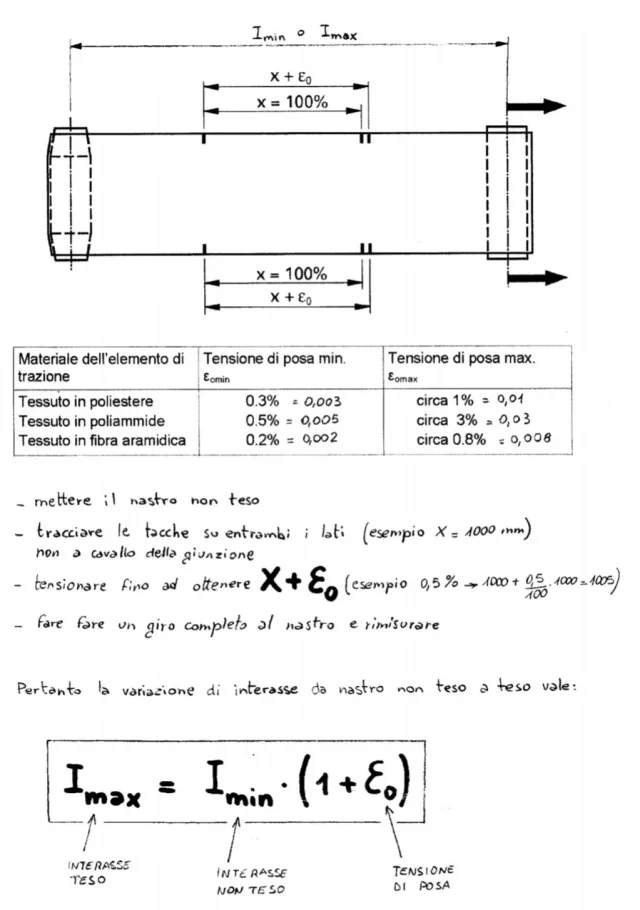 Imin o Imax
x + ε₀
x = 100%
x = 100%
x + ε₀
Materiale dell'elemento di trazione | Tensione di posa min. εomin | Tensione di posa max. εomax
Tessuto in poliestere | 0.3% = 0,003 | circa 1% = 0,01
Tessuto in poliammide | 0.5% = 0,005 | circa 3% = 0,03
Tessuto in fibra aramidica | 0.2% = 0,002 | circa 0.8% = 0,008
- mettere il nastro non teso
- tracciare le tacche su entrambi i lati (esempio X = 1000 mm)
non a cavallo della giunzione
- tensionare fino ad ottenere X + ε₀ (esempio 0,5% → 1000 + 0,5/100 · 1000 = 1005)
- fare fare un giro completo al nastro e rimisurare
Pertanto la variazione di interasse da nastro non teso a teso vale:
Imax = Imin · (1 + ε₀)
INTERASSE
TESO
INTERASSE
NON TESO
TENSIONE
DI POSA